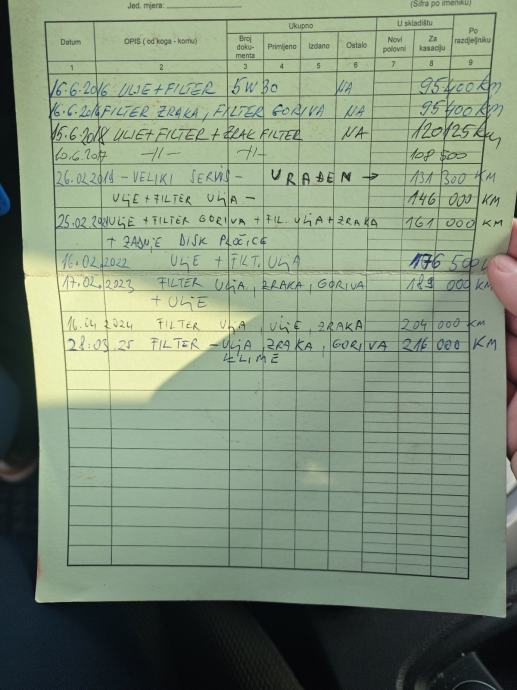 Jed. mjera:
(Šifra po imeniku)
Datum OPIS ( od koga - komu) Ukupno U skladištu Po razdjeljniku
Broj doku- menta Primljeno Izdano Ostalo Novi polovni Za kasaciju
1 2 3 4 5 6 7 8 9
16.6.2016 ULJE + FILTER 5W30 NA 95400 KM
16.6.2016 FILTER ZRAKA, FILTER GORIVA NA 95400 KM
15.6.2018 ULJE + FILTER + ZRAK FILTER NA 120125 KM
10.6.2017 -11- -11- 108 500
26.02.2019 - VELIKI SERVIS - URAĐEN → 131 300 KM
ULJE + FILTER ULJA - 146 000 KM
25.02.2021 ULJE + FILTER GORIVA + FIL. ULJA + ZRAKA 161 000 KM
+ ZADNJE DISK PLOČICE
16.02.2022 ULJE + FILT. ULJA 176 500
17.02.2023 FILTER ULJA, ZRAKA, GORIVA 189 000 KM
+ ULJE
16.04 2024 FILTER ULJA, ULJE, ZRAKA 204 000 KM
28.03.25 FILTER - ULJA, ZRAKA, GORIVA 216 000 KM
KLIME